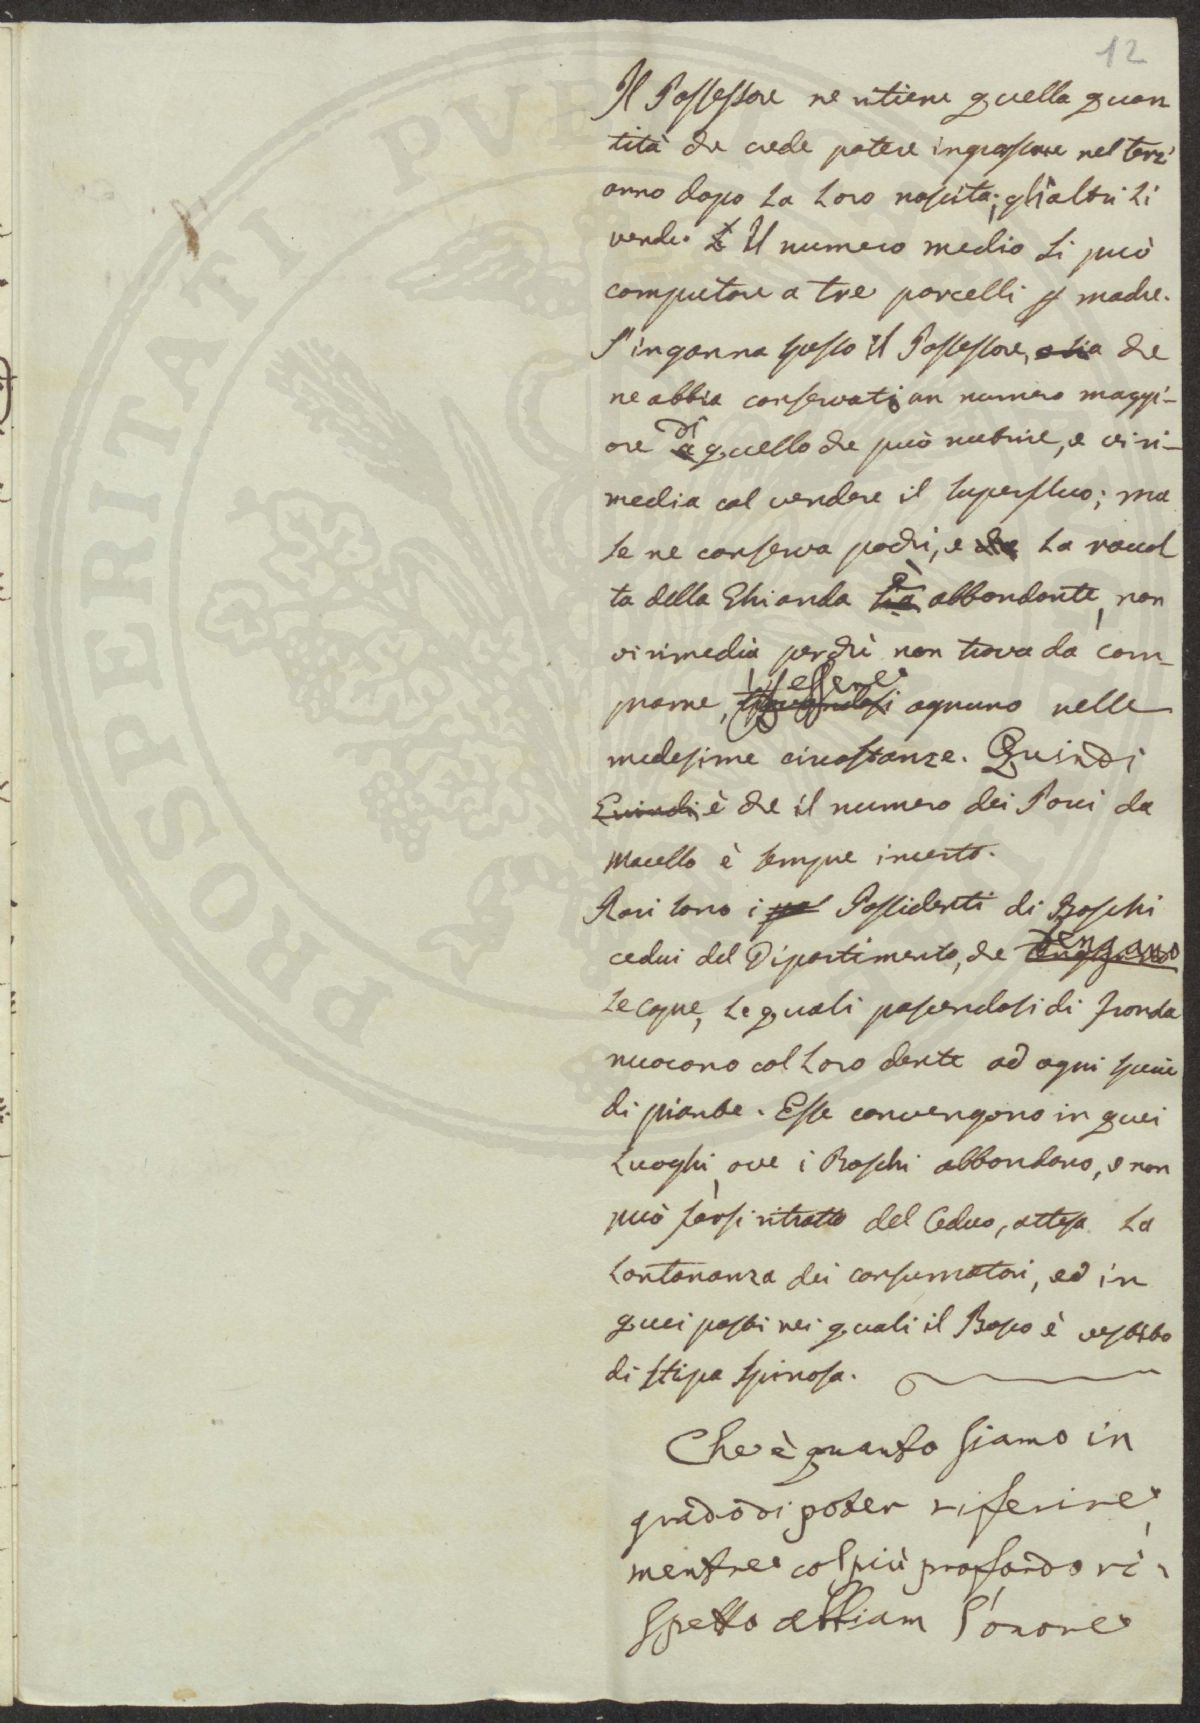 12
Il Possessore ne ritiene quella quan
tità che crede potere ingrassare nel terz'
anno dopo la loro nascita; gli altri li
vende. Il numero medio si può
computare a tre porcelli p madre.
S'inganna spesso il Possessore, o sia che
ne abbia conservati un numero maggi-
ore di quello che può nutrire, e vi ri-
media col vendere il superfluo; ma
se ne conserva pochi, e la racol
ta della Ghianda è abbondante, non
vi rimedia perchè non trova da com-
prarne, essere ognuno nelle
medesime circostanze. Quindi
Quindi è che il numero dei Porci da
Macello è sempre incerto.
Rari sono i Possidenti di Boschi
cedui del Dipartimento, che tengano
le capre, le quali pascendosi di fronda
nuocono col loro dente ad ogni specie
di piante. Esse convengono in quei
luoghi, ove i Boschi abbondano, e non
può farsi ritratto del Ceduo, attesa la
lontananza dei consumatori, ed in
quei posti nei quali il Bosco è vestito
di stipa spinosa.
Che è quanto siamo in
grado di poter riferire,
mentre col più profondo ri-
spetto abbiam l'onore
PROSPERITATI PVBLICAE